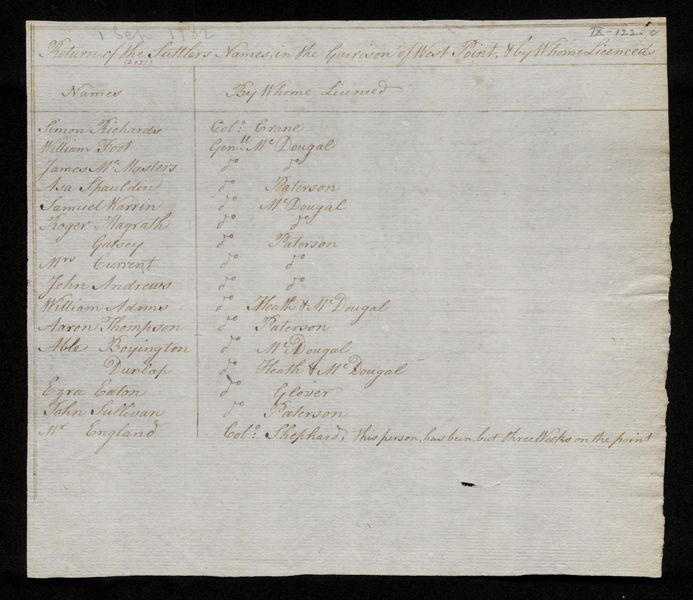 1 Sep 1782
IX-122.
Return of the Suttlers Names, in the Garrison of West Point, & by Whome Licenced
Names By Whome Licenced
Simon Richards Colo. Crane
William Foot Genll. Mc Dougal
James Mc Masters do do
Asa Spauldin do Paterson
Samuel Warrin do Mc Dougal
Roger Magrath do do
Gatsey do Paterson
Mrs Current do do
John Andrews do do
William Adams do Heath & Mc Dougal
Aaron Thompson do Paterson
Able Boyington do Mc Dougal
Dunlap do Heath & Mc Dougal
Ezra Eaton do Glover
John Sullivan do Paterson
Mr England Colo. Shephard, this person, has been, but three Weeks on the point